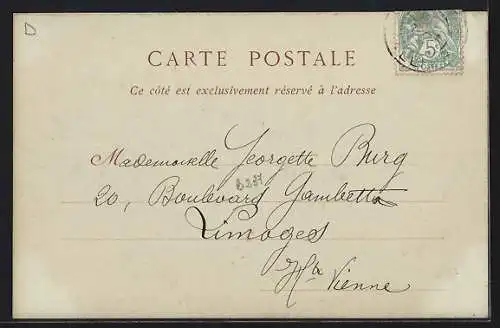 D
CARTE POSTALE
Ce côté est exclusivement réservé à l'adresse
5c
Mademoiselle Georgette Burg
20, Boulevard Gambetta
Limoges
Hte Vienne